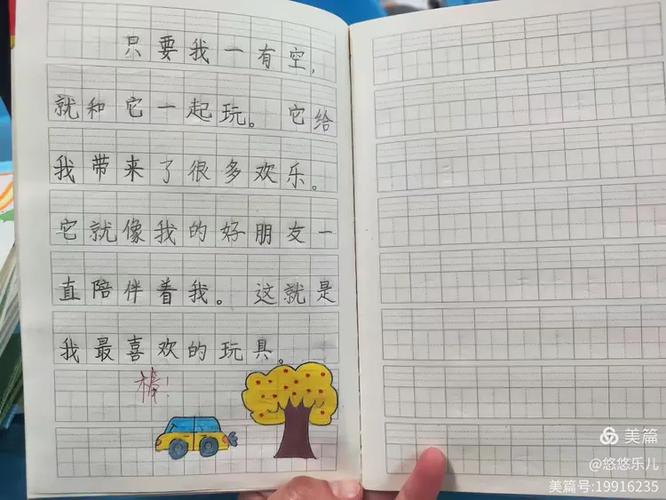 只要我一有空，
就和它一起玩。它给
我带来了很多欢乐。
它就像我的好朋友一
直陪伴着我。这就是
我最喜欢的玩具。
棒！
美篇
@悠悠乐儿
美篇号:19916235